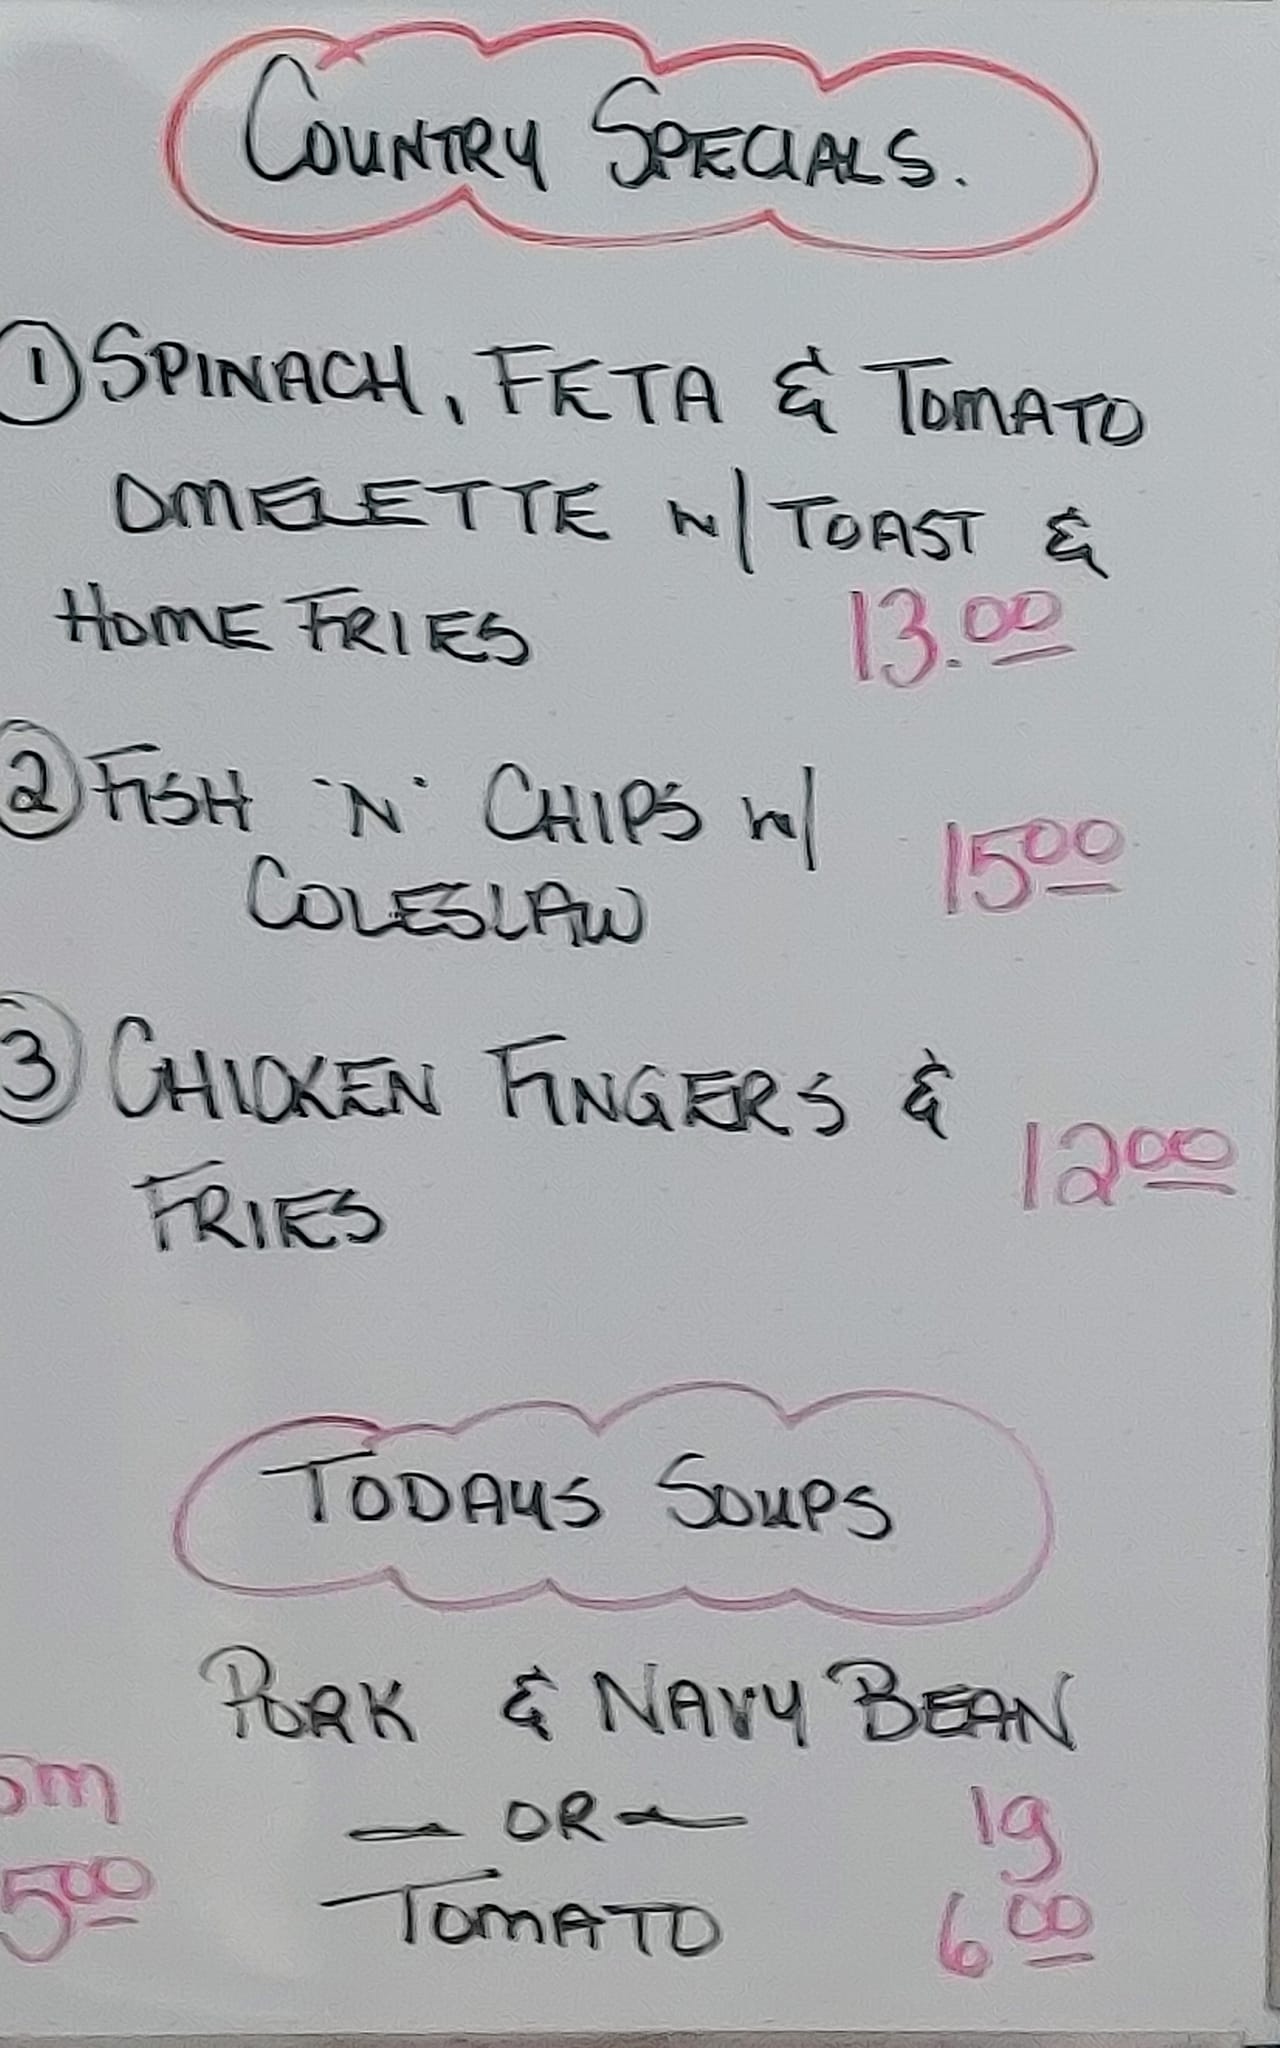 COUNTRY SPECIALS.
① SPINACH, FETA & TOMATO
OMELETTE W/ TOAST &
HOME FRIES 13.00
② FISH 'N' CHIPS W/ 15 00
COLESLAW
③ CHICKEN FINGERS & 12 00
FRIES
TODAYS SOUPS
PORK & NAVY BEAN
sm — OR — lg
5 00 TOMATO 6 00